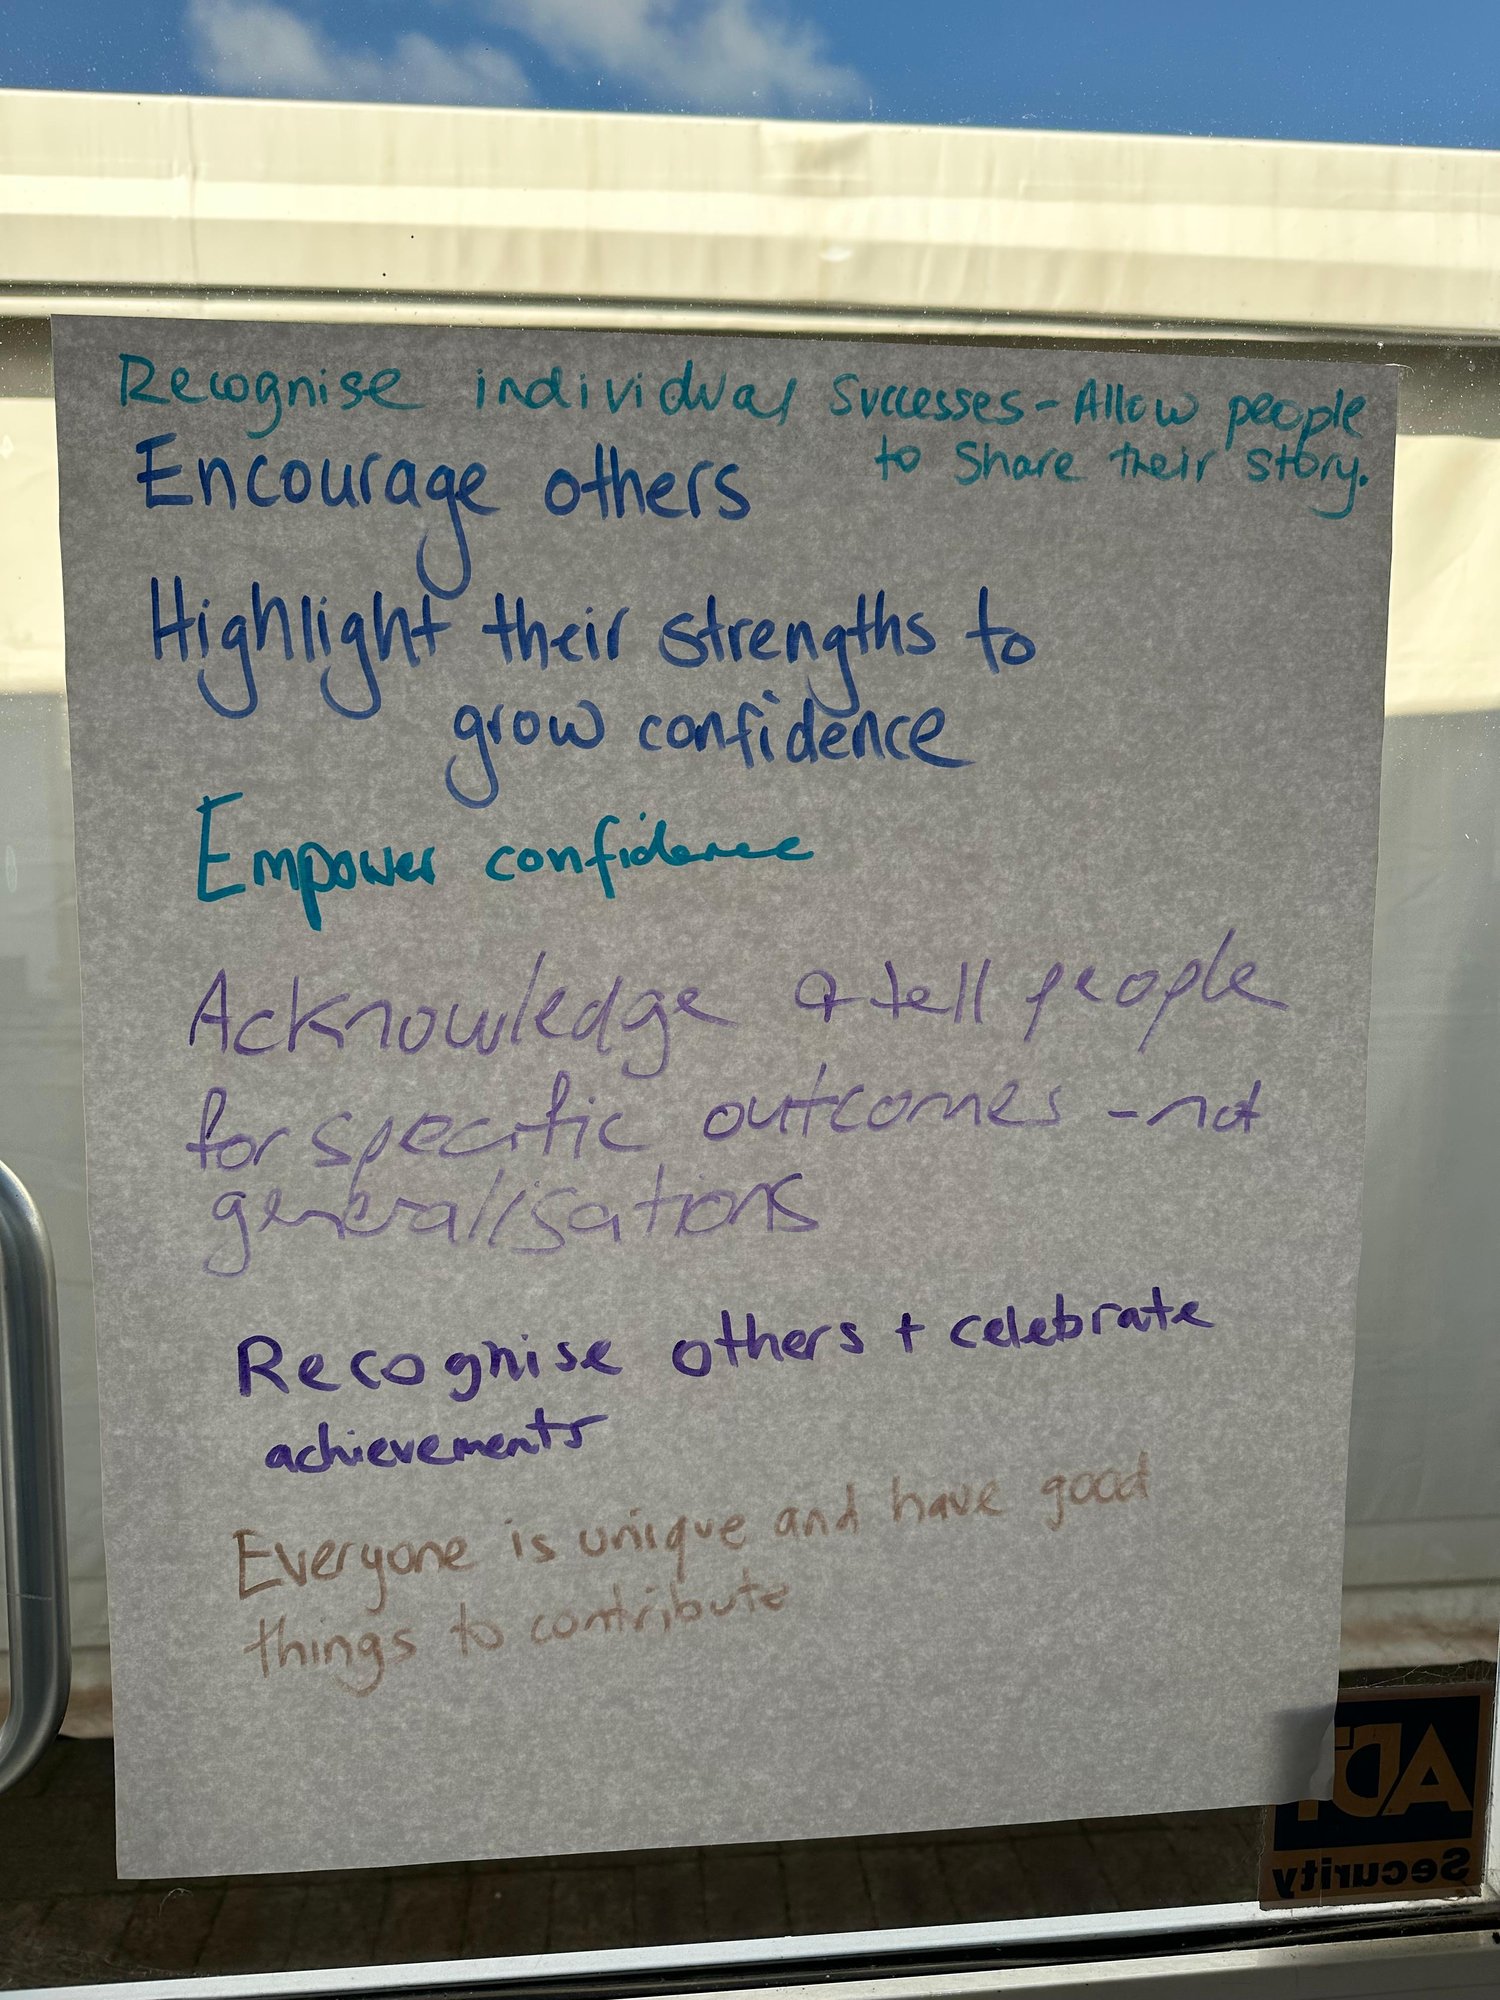 Recognise individual Successes - Allow people
to Share their story.
Encourage others
Highlight their strengths to
grow confidence
Empower confidence
Acknowledge & tell people
for specific outcomes - not
generalisations
Recognise others + celebrate
achievements
Everyone is unique and have good
things to contribute
ADT
Security